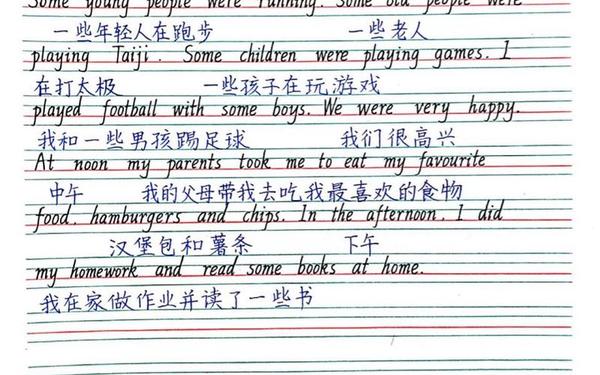 Some young people were running. Some old people were
一些年轻人在跑步 一些老人
playing Taiji. Some children were playing games. I
在打太极 一些孩子在玩游戏
played football with some boys. We were very happy.
我和一些男孩踢足球 我们很高兴
At noon my parents took me to eat my favourite
中午 我的父母带我去吃我最喜欢的食物
food, hamburgers and chips. In the afternoon, I did
汉堡包和薯条 下午
my homework and read some books at home.
我在家做作业并读了一些书